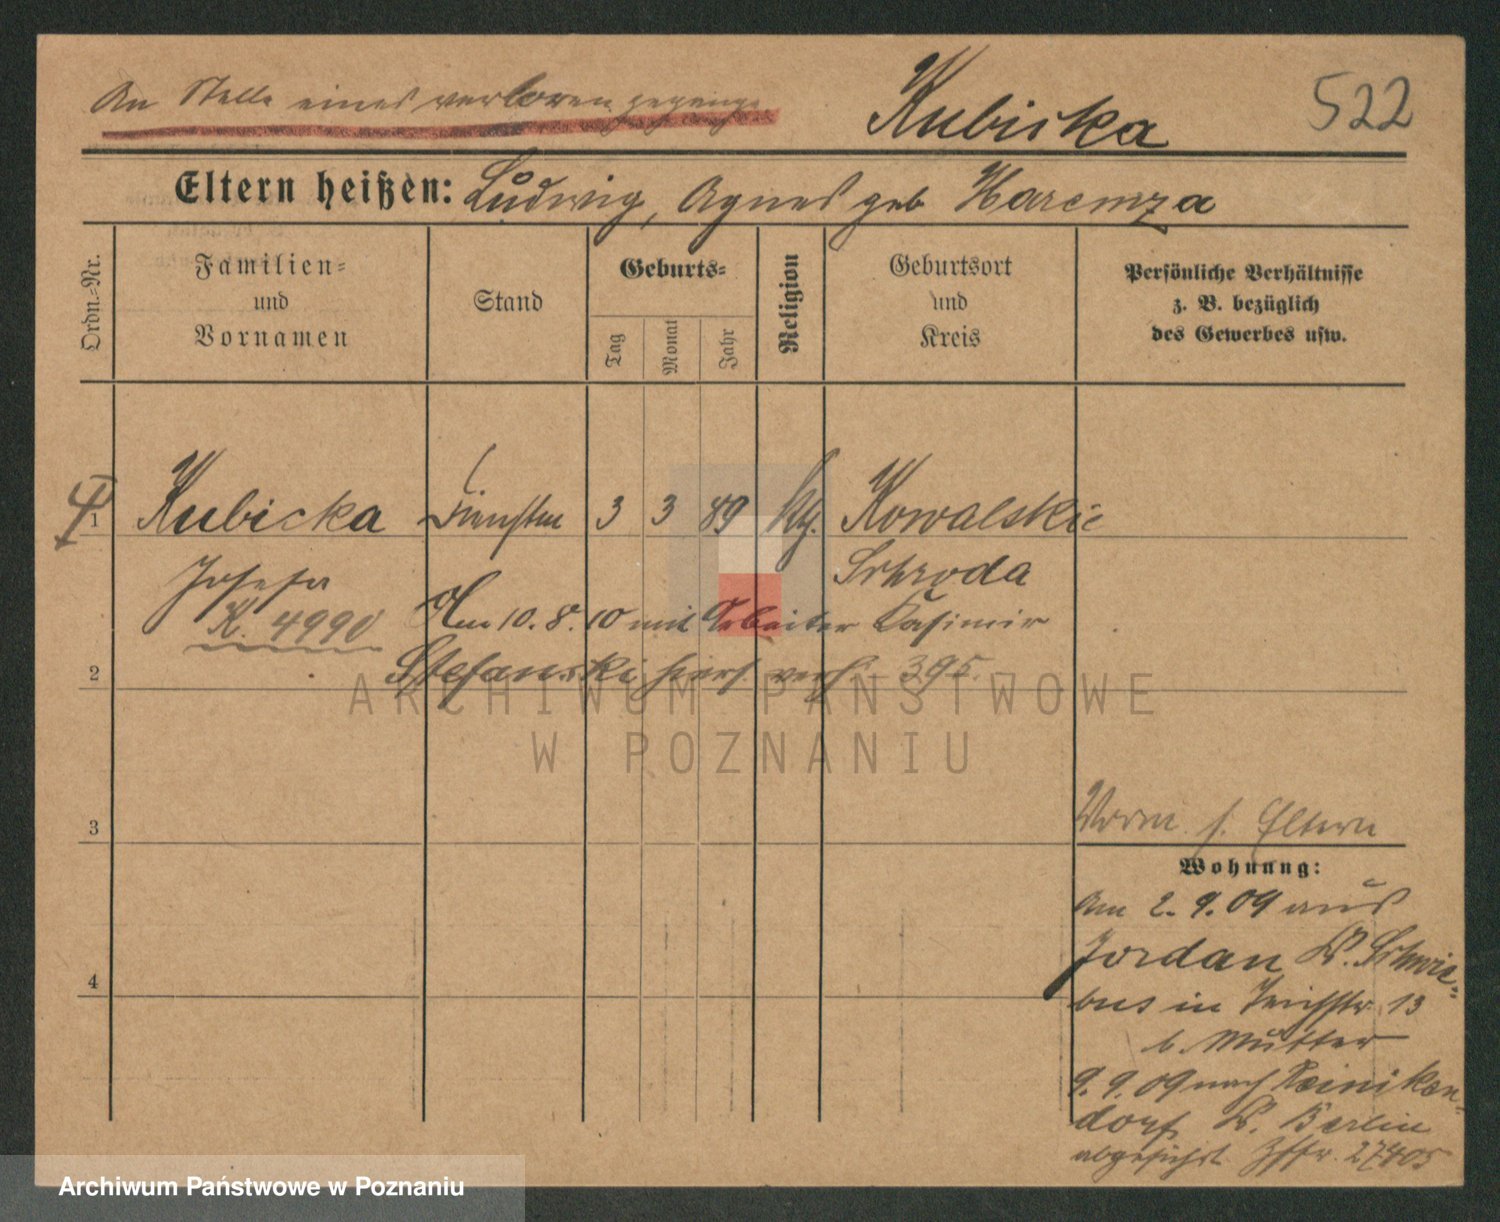 An Stelle eines verloren gegang.
Kubicka
522
Eltern heißen: Ludwig, Agnes geb Haremza
Ordn.-Nr.
Familien-
und
Vornamen
Stand
Geburts-
Tag
Monat
Jahr
Religion
Geburtsort
und
Kreis
Persönliche Verhältnisse
z. B. bezüglich
des Gewerbes usw.
1 Kubicka 3 3 89 kth. Kowalskie
Josefa Schroda
K. 4990 Am 10.8.10 mit Arbeiter Kasimir
2 Stefanski hier verh. 395.
ARCHIWUM PAŃSTWOWE
W POZNANIU
3
Vorm. s. Eltern
Wohnung:
Am 2.9.09 aus
Jordan K. Schwie-
4
bus in Teichstr. 13
b. Mutter
9.9.09 nach Reiniken-
dorf K. Berlin
abgeführt 27405
Archiwum Państwowe w Poznaniu